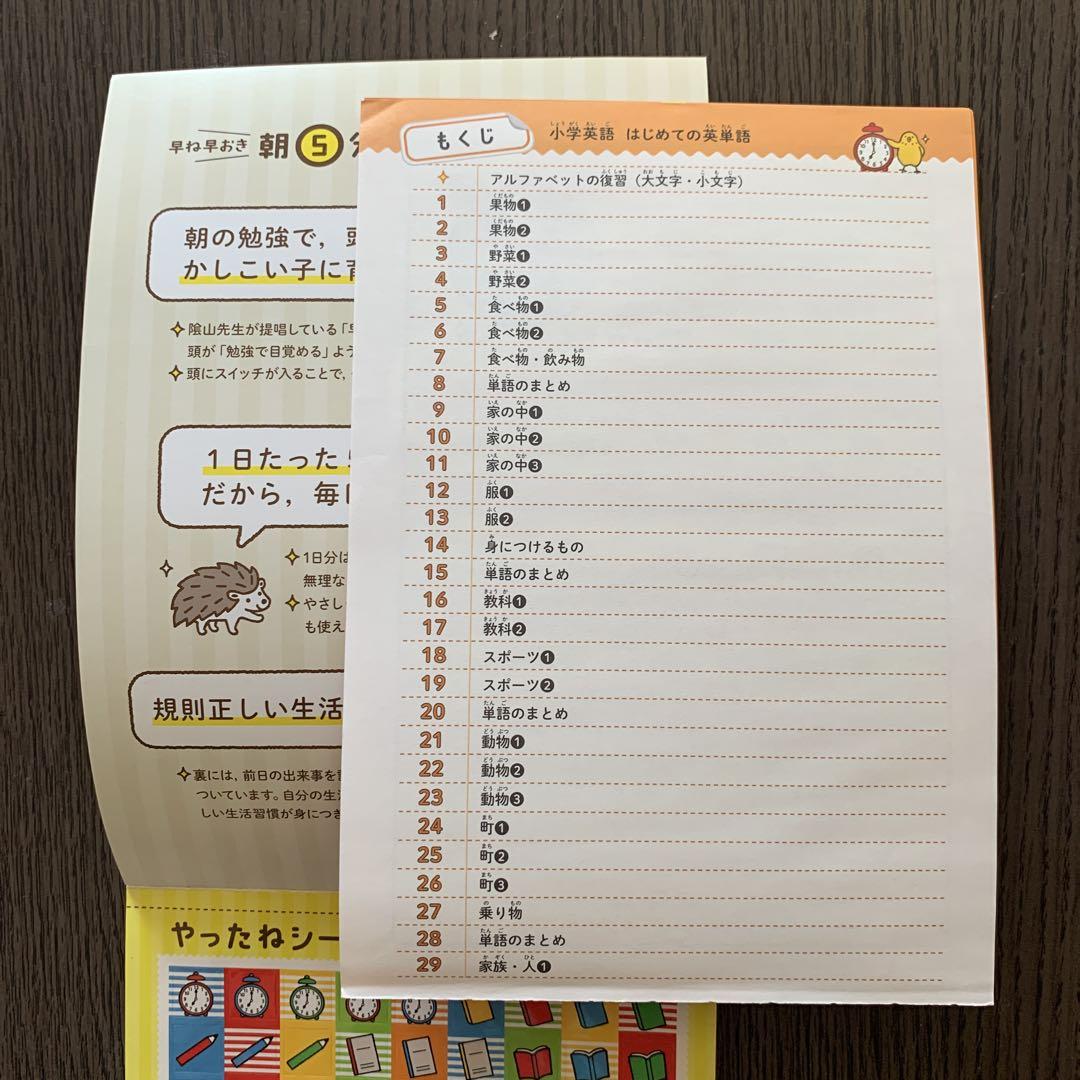 早ね早おき 朝5
朝の勉強で,
かしこい子に
陰山先生が提唱している「
頭が「勉強で目覚める」よ
頭にスイッチが入ることで,
1日たった
だから, 毎
1日分は
無理な
やさし
も使え
規則正しい生活
裏には, 前日の出来事を
ついています。自分の生
しい生活習慣が身につき
やったねシー
もくじ
小学英語 はじめての英単語
アルファベットの復習(大文字・小文字)
1 果物❶
2 果物❷
3 野菜❶
4 野菜❷
5 食べ物❶
6 食べ物❷
7 食べ物・飲み物
8 単語のまとめ
9 家の中❶
10 家の中❷
11 家の中❸
12 服❶
13 服❷
14 身につけるもの
15 単語のまとめ
16 教科❶
17 教科❷
18 スポーツ❶
19 スポーツ❷
20 単語のまとめ
21 動物❶
22 動物❷
23 動物❸
24 町❶
25 町❷
26 町❸
27 乗り物
28 単語のまとめ
29 家族・人❶